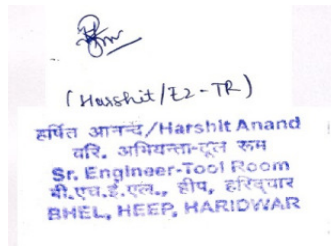 (Harshit/E2-TR)
हर्षित आनन्द/Harshit Anand
वरि. अभियन्ता-टूल रूम
Sr. Engineer-Tool Room
बी.एच.ई.एल., हीप, हरिद्वार
BHEL, HEEP, HARIDWAR